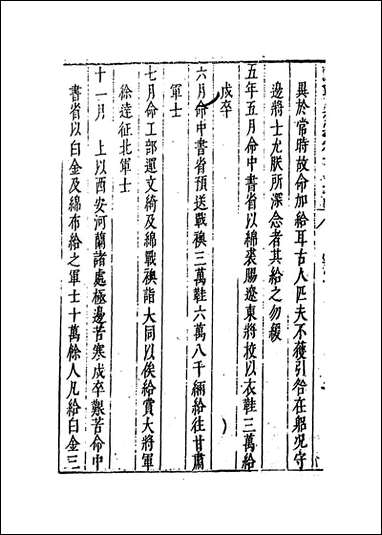 異於常時故命加給耳古人匹夫不獲引咎在躬况守
邊將士尤朕所深念者其給之勿緩
五年五月命中書省以綿裘賜遼東將校以衣鞋三萬給
戍卒
六月命中書省預送戰襖三萬鞋六萬八千緉給往甘肅
軍士
七月命工部運文綺及綿戰襖詣大同以俟給賞大將軍
徐達征北軍士
十一月 上以西安河蘭諸處極邊苦寒戍卒艱苦命中
書省以白金及綿布給之軍士十萬餘人凡給白金三